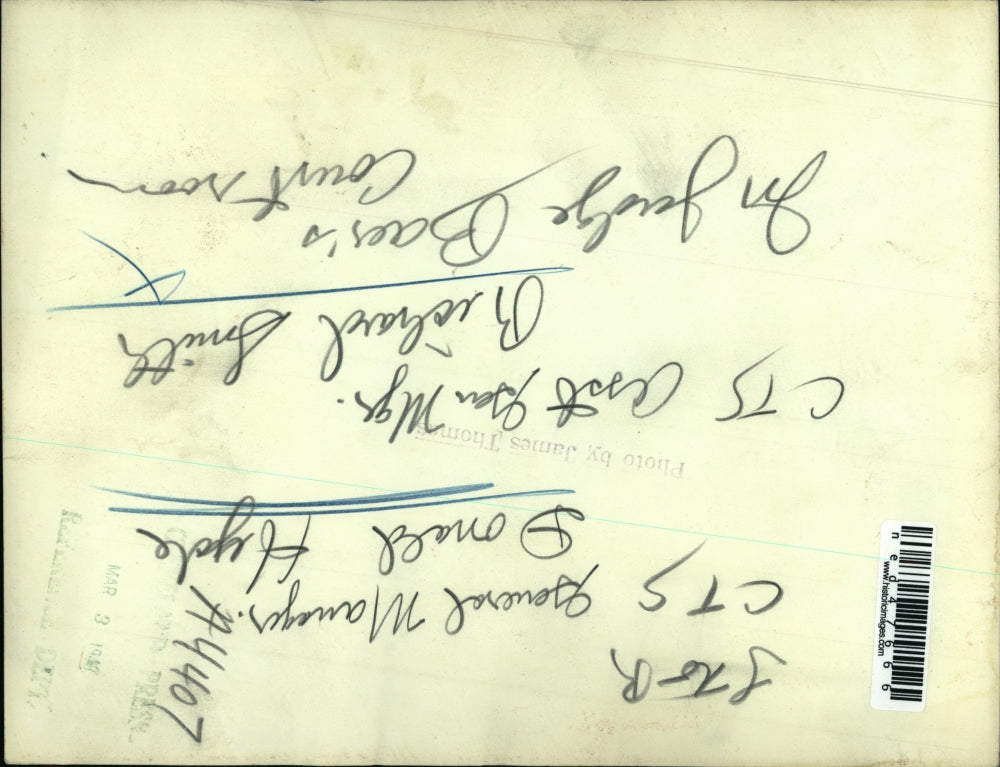 L to R
CTS General Manager.
Donald Hyde
CTS Asst Gen Mgr.
Richard Smith
In Judge Baer's
Court room
A4407
Photo by James Thomas
PRESS
MAR 3
REFERENCE DEPT.
ned47666
www.historicimages.com